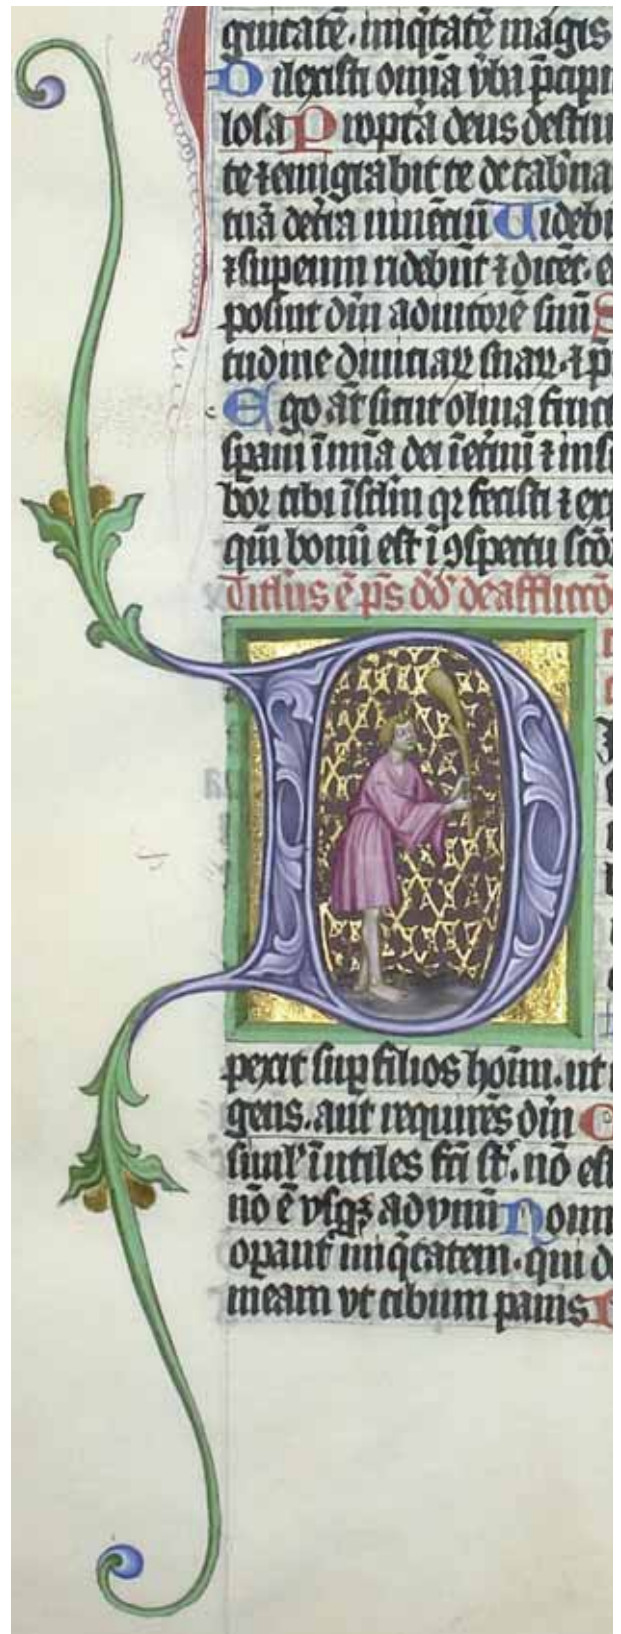 quitatē. iniq̄tatē magis
Dilexisti omīa v̄ba p̄cipi
losa Propt̄a deus destru
te ⁊ emigrabit te de tab̄na
tuā de t̄ra viuēciū Videbu
⁊ sup eum ridebūt ⁊ dicēt. e
posuit dm̄ adiutorē suū S
tudine diuiciaꝝ suaꝝ. ⁊ p
Ego at̄ sicut oliua fruct
sp̄aui ī mīa dei ī et̄nū ⁊ in se
bor tibi ī sclm̄ qr fecisti ⁊ exp
qm̄ bonū est ī ꝯspectu scō
Titlus ē ps̄ dd̄ de afflictō
D
pexit sup filios hoīm. ut
gens. aut requirēs dm̄
siml' īutiles fc̄i st̄. nō est
nō ē vsqꝫ ad vnū Nonn
opant̄ iniq̄tatem. qui de
meam vt cibum panis